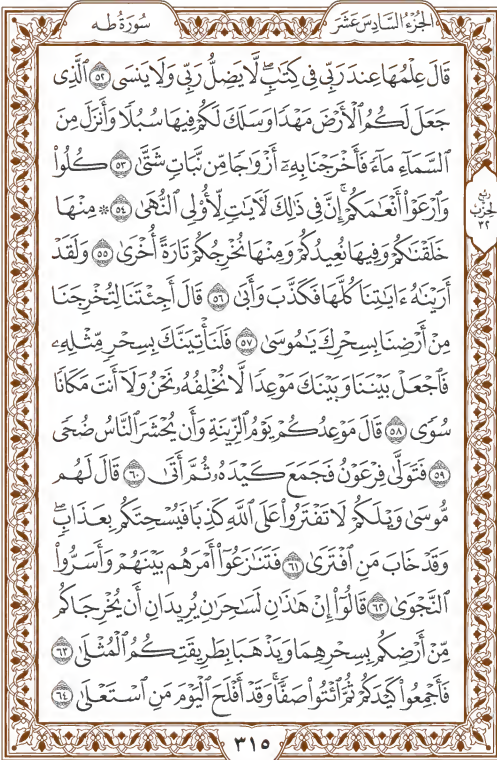 الجزء السادس عشر
سورة طه
قَالَ عِلْمُهَا عِندَ رَبِّي فِي كِتَٰبٍ ۖ لَّا يَضِلُّ رَبِّي وَلَا يَنسَى ٥٢ ٱلَّذِي
جَعَلَ لَكُمُ ٱلْأَرْضَ مَهْدًا وَسَلَكَ لَكُمْ فِيهَا سُبُلًا وَأَنزَلَ مِنَ
ٱلسَّمَآءِ مَآءً فَأَخْرَجْنَا بِهِۦٓ أَزْوَٰجًا مِّن نَّبَاتٍ شَتَّىٰ ٥٣ كُلُوا۟
وَٱرْعَوْا۟ أَنْعَٰمَكُمْ ۗ إِنَّ فِي ذَٰلِكَ لَءَايَٰتٍ لِّأُو۟لِي ٱلنُّهَىٰ ٥٤ ۞ مِنْهَا
خَلَقْنَٰكُمْ وَفِيهَا نُعِيدُكُمْ وَمِنْهَا نُخْرِجُكُمْ تَارَةً أُخْرَىٰ ٥٥ وَلَقَدْ
أَرَيْنَٰهُ ءَايَٰتِنَا كُلَّهَا فَكَذَّبَ وَأَبَىٰ ٥٦ قَالَ أَجِئْتَنَا لِتُخْرِجَنَا
مِنْ أَرْضِنَا بِسِحْرِكَ يَٰمُوسَىٰ ٥٧ فَلَنَأْتِيَنَّكَ بِسِحْرٍ مِّثْلِهِۦ
فَٱجْعَلْ بَيْنَنَا وَبَيْنَكَ مَوْعِدًا لَّا نُخْلِفُهُۥ نَحْنُ وَلَآ أَنتَ مَكَانًا
سُوًى ٥٨ قَالَ مَوْعِدُكُمْ يَوْمُ ٱلزِّينَةِ وَأَن يُحْشَرَ ٱلنَّاسُ ضُحًى
٥٩ فَتَوَلَّىٰ فِرْعَوْنُ فَجَمَعَ كَيْدَهُۥ ثُمَّ أَتَىٰ ٦٠ قَالَ لَهُم
مُّوسَىٰ وَيْلَكُمْ لَا تَفْتَرُوا۟ عَلَى ٱللَّهِ كَذِبًا فَيُسْحِتَكُم بِعَذَابٍ ۖ
وَقَدْ خَابَ مَنِ ٱفْتَرَىٰ ٦١ فَتَنَٰزَعُوٓا۟ أَمْرَهُم بَيْنَهُمْ وَأَسَرُّوا۟
ٱلنَّجْوَىٰ ٦٢ قَالُوٓا۟ إِنْ هَٰذَٰنِ لَسَٰحِرَٰنِ يُرِيدَانِ أَن يُخْرِجَاكُم
مِّنْ أَرْضِكُم بِسِحْرِهِمَا وَيَذْهَبَا بِطَرِيقَتِكُمُ ٱلْمُثْلَىٰ ٦٣
فَأَجْمِعُوا۟ كَيْدَكُمْ ثُمَّ ٱئْتُوا۟ صَفًّا ۚ وَقَدْ أَفْلَحَ ٱلْيَوْمَ مَنِ ٱسْتَعْلَىٰ ٦٤
ربع
الحزب
٣٢
٣١٥